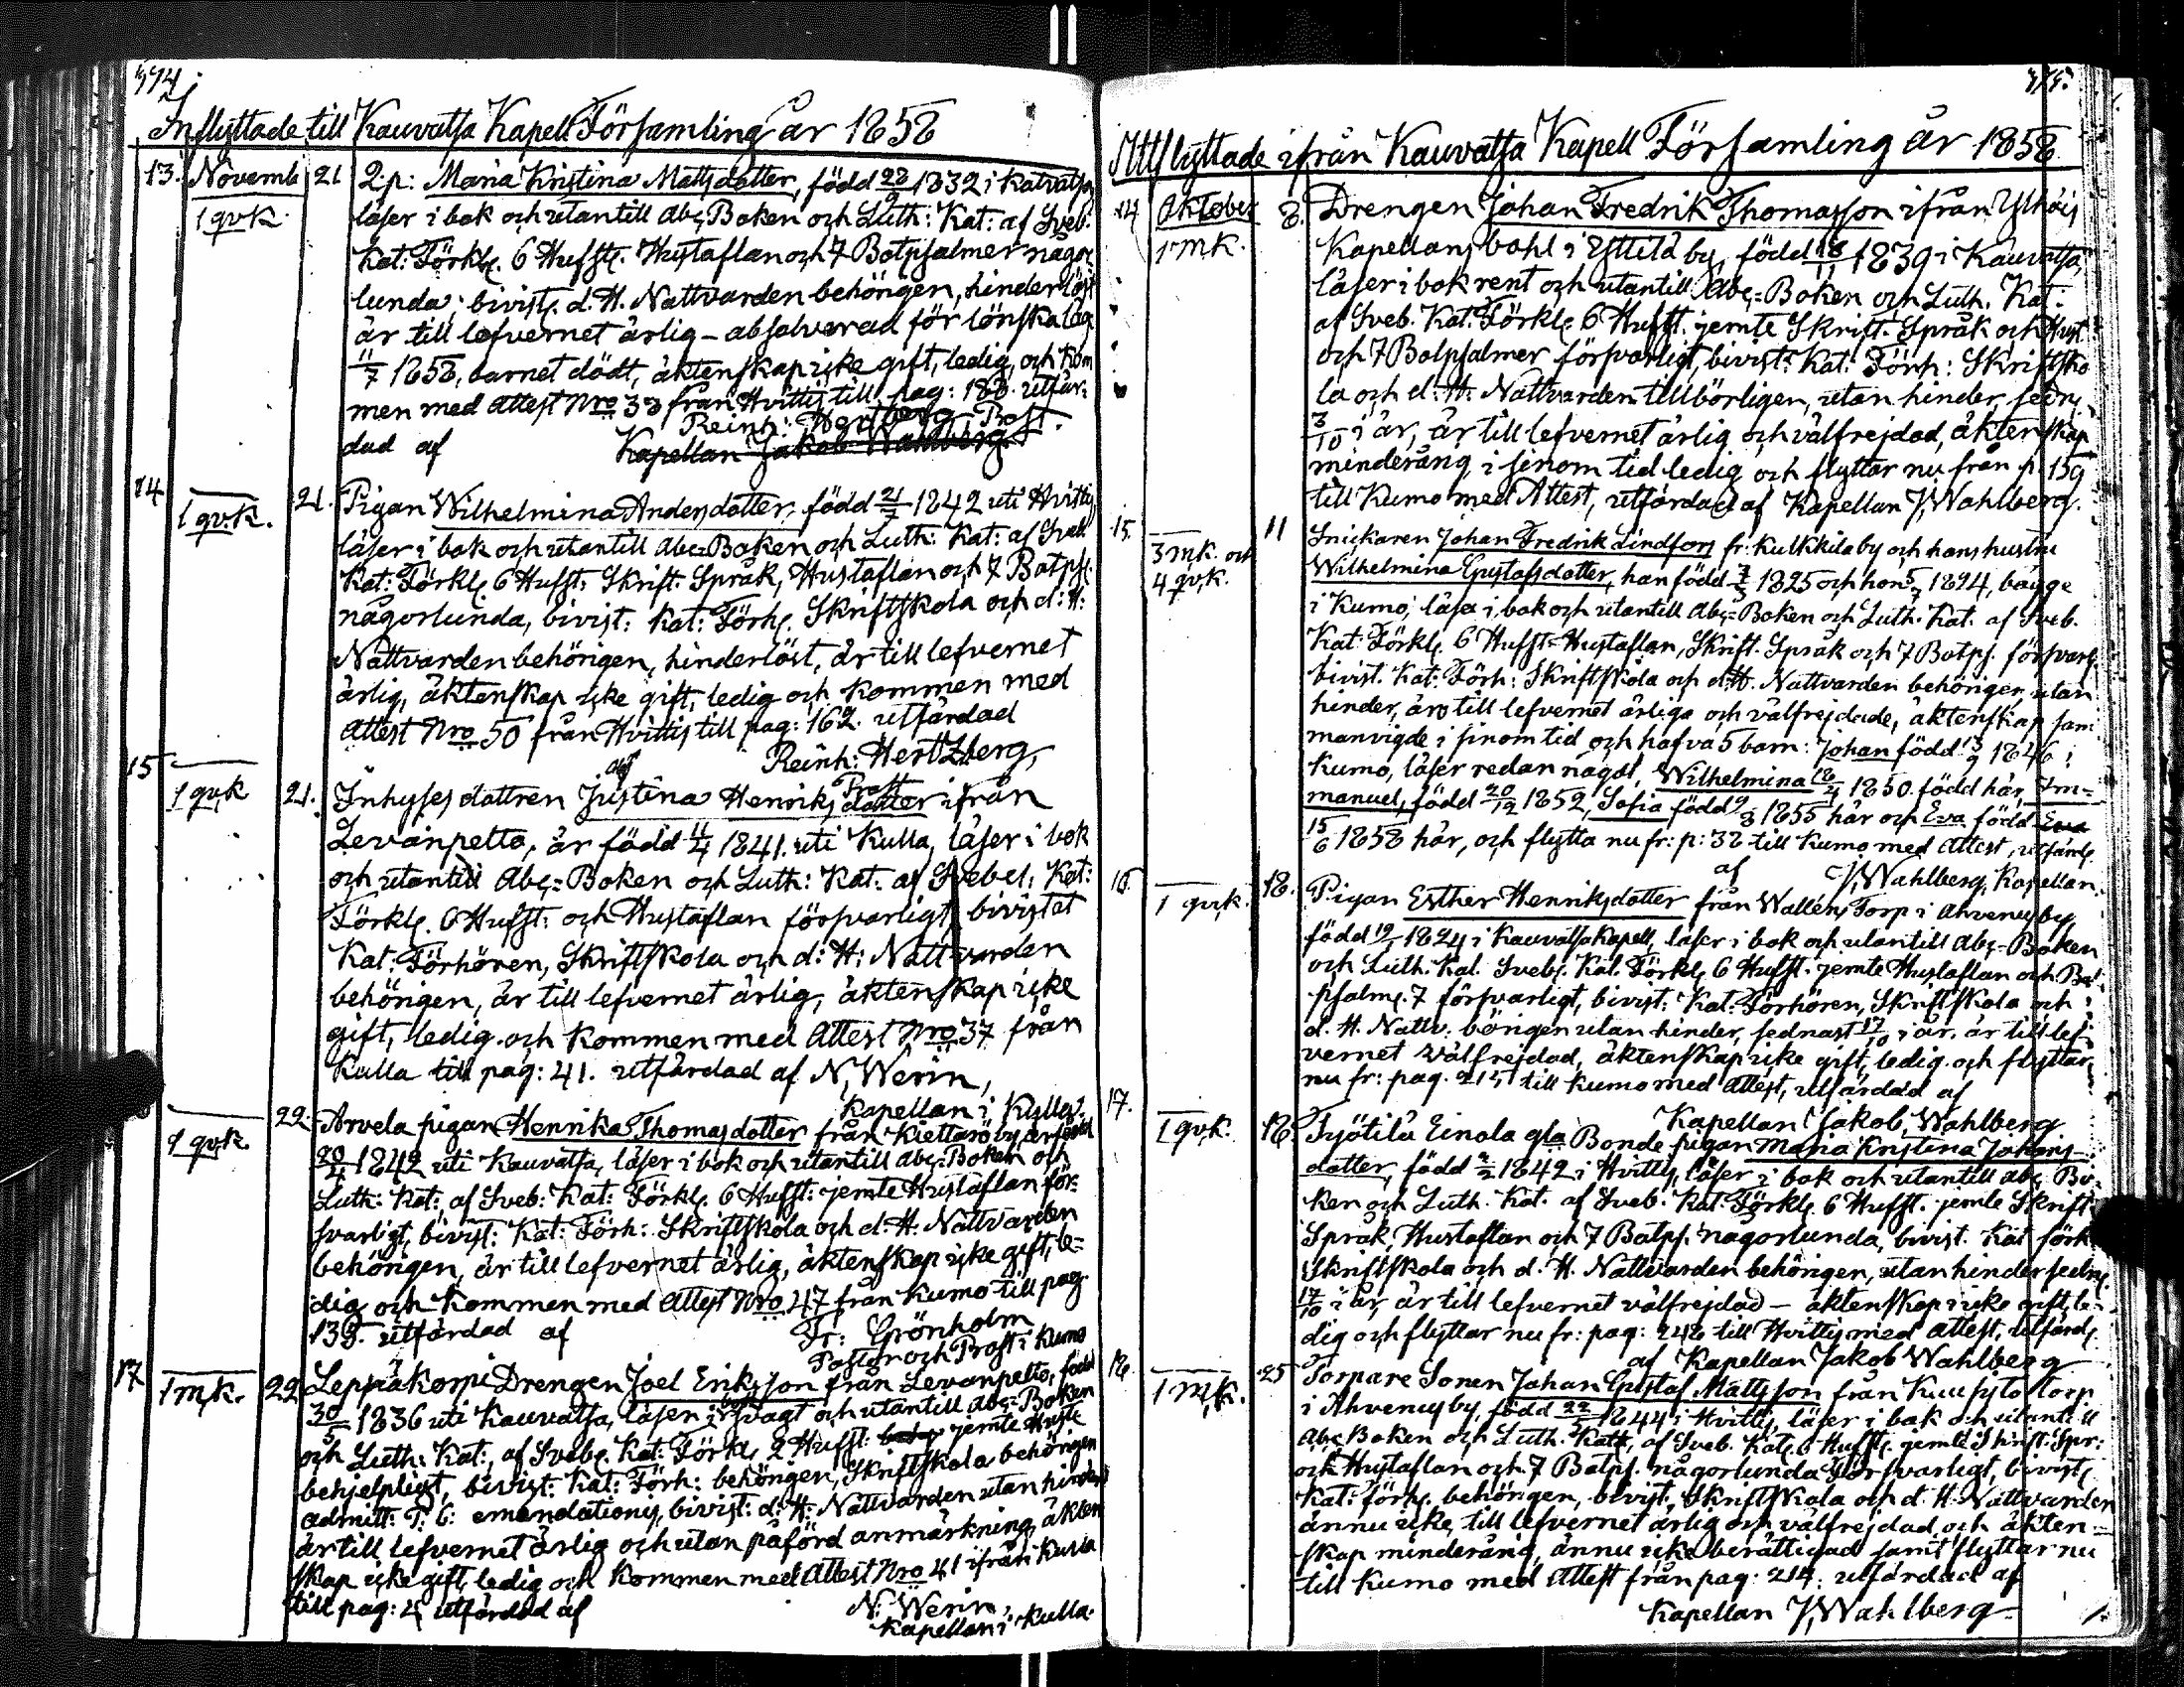 Inflyttade till Kauvatsa Kapell Församling år 1858
13. Novemb 21 Q:p: Maria Kristina Mattsdotter, född 28/9 1832 i Kauvatsa,
1 qv.k. läser i bok och utantill Abc-Boken och Luth: Kat: af Sveb.
Kat: Förkl. 6 Hufst. Hustaflan och 7 Botpsalmer någor
lunda; bivist. d. H. Nattvarden behörigen, hinderlöst
är till lefvernet ärlig – absolverad för lönskaläge
11/7 1858, barnet dödt, äktenskap icke gift, ledig, och kom
men med Attest Nro 38 från Hvittis till pag: 188. utfär-
dad af Reinh: Hertzberg Prost.
Kapellan Jakob Wahlberg
14. 21. Pigan Wilhelmina Andersdotter, född 21/7 1842 uti Hvittis,
1 qv.k. läser i bok och utantill Abc-Boken och Luth: Kat: af Sveb.
Kat: Förkl. 6 Hufst. Skrift. Språk, Hustaflan och 7 Botps.
någorlunda, bivist: Kat: Förh. Skriftskola och d: H:
Nattvarden behörigen, hinderlöst, är till lefvernet
ärlig, äktenskap icke gift, ledig och kommen med
Attest Nro 50 från Hvittis till pag: 162. utfärdad
af Reinh: Hertzberg,
Prost
15 21. Inhyses dottren Justina Henriks dotter ifrån
1 qv.k Levänpelto, är född 11/4 1841. uti Kulla, läser i bok
och utantill Abc-Boken och Luth: Kat: af Svebel: Kat:
Förkl. 6 Hufst: och Hustaflan försvarligt, bivistat
Kat: Förhören, Skriftskola och d: H: Nattvarden
behörigen, är till lefvernet ärlig, äktenskap icke
gift, ledig och kommen med Attest Nro 37 från
Kulla till pag: 41. utfärdad af N. Werin,
Kapellan i Kulla.
22. Arvela pigan Henrika Thomasdotter från Kiettarö by, är född
1 qv.k. 20/4 1842 uti Kauvatsa, läser i bok och utantill Abc-Boken och
Luth: Kat: af Sveb: Kat: Förkl. 6 Hufst: jemte Hustaflan för-
svarligt, bivist: Kat: Förh: Skriftskola och d: H. Nattvarden
behörigen, är till lefvernet ärlig, äktenskap icke gift, le-
dig och kommen med Attest Nro 47 från Kumo till pag.
138. utfärdad af Fr: Grönholm
Pastor och Prost i Kumo
17 22 Leppäkorpi Drengen Joel Eriksson från Levanpelto, född
1 m.k. 30/5 1836 uti Kauvatsa, läser i bok svagt och utantill Abc-Boken
och Luth: Kat:, af Sveb. Kat: Förkl. 2 Hufst: jemte Huste
behjelpligt, bivist: Kat: Förh: behörigen, Skriftskola behörigen
admitt: T. C: emendationis, bivist: d: H: Nattvarden utan hinder
är till lefvernet ärlig och utan påförd anmärkning, äkten
skap icke gift, ledig och kommen med Attest Nro 41 ifrån Kulla
till pag: utfärdad af N. Werin,
Kapellan i Kulla.
Uttflyttade ifrån Kauvatsa Kapell Församling år 1858
14 Oktober 8. Drengen Johan Fredrik Thomasson ifrån Ylhöis
1 m.k. Kapellansbohl i Yttilä by, född 18/11 1839 i Kauvatsa,
läser i bok rent och utantill Abc-Boken och Luth. Kat:
af Sveb. Kat: Förkl. 6 Hufst. jemte Skrift. Språk och Hust
och 7 Botpsalmer försvarligt, bivist: Kat: Förh: Skriftsko
la och d: H: Nattvarden tillbörligen, utan hinder, sedn.
3/10 i år, är till lefvernet ärlig och välfrejdad, äktenskap
minderårig, i sinom tid ledig och flyttar nu från p. 159
till Kumo med Attest, utfärdad af Kapellan J. Wahlberg.
15. 11 Snickaren Johan Fredrik Lindfors fr: Kulkkila by och hans hustru
3 m.k. och Wilhelmina Gustafsdotter, han född 1825 och hon 5/7 1824, bägge
4 qv.k. i Kumo, läser i bok och utantill Abc-Boken och Luth. Kat. af Sveb.
Kat: Förkl. 6 Hufst: Hustaflan, Skrift. Språk och 7 Botps. försvarl.
bivist. Kat: Förh: Skriftskola och d. H. Nattvarden behörigen, utan
hinder, äro till lefvernet ärliga och välfrejdade, äktenskap sam
manvigde i sinom tid och hafva 5 barn: Johan född 13/9 1846 i
Kumo, läser redan något, Wilhelmina 18/4 1850. född här, Im-
manuel, född 20/12 1852, Sofia född 9/3 1855 här och Eva född
15/6 1858 här, och flytta nu fr: p: 32 till Kumo med Attest, utfärd.
af J. Wahlberg, Kapellan.
16. 18. Pigan Esther Henriksdotter från Wallens Torp i Ahvenus by
1 qv.k. född 1824 i Kauvatsa Kapell, läser i bok och utantill Abc-Boken
och Luth. Kat. Sveb. Kat. Förkl. 6 Hufst. jemte Hustaflan och Bot
psalm. 7 försvarligt, bivist: Kat: Förhören, Skriftskola och
d. H. Nattv. börigen utan hinder, sednast 17/10 i år, är till lef-
vernet välfrejdad, äktenskap icke gift, ledig och flyttar
nu fr: pag. 215 till Kumo med Attest, utfärdad af
Kapellan Jakob Wahlberg
17. 18. Työtilä Einola gla Bonde pigan Maria Kristina Johans-
1 qv.k. dotter, född 1842 i Hvittis, läser i bok och utantill Abc Bo-
ken och Luth. Kat. af Sveb. Kat. Förkl. 6 Hufst. jemte Skrift.
Språk, Hustaflan och 7 Botps. någorlunda, bivist. Kat förh
Skriftskola och d. H. Nattvarden behörigen, utan hinder sedn.
17/10 i år, är till lefvernet välfrejdad – äktenskap icke gift, le-
dig och flyttar nu fr: pag: 248 till Hvittis med Attest, utfärd.
af Kapellan Jakob Wahlberg
18. 25 Torpare Sonen Johan Gustaf Mattsson från Kuusisto torp
1 m.k. i Ahvenus by, född 22/5 1844 i Hvittis, läser i bok och utantill
Abc Boken och Luth. Kat, af Sveb. Kat. 6 Hufst. jemte Skrift. Spr:
och Hustaflan och 7 Botps. någorlunda försvarligt, bivist.
Kat: förh. behörigen, bivist. Skriftskola och d. H. Nattvarden
ännu icke, till lefvernet ärlig och välfrejdad och äkten-
skap minderårig, ännu icke berättigad samt flyttar nu
till Kumo med Attest från pag: 214: utfärdad af
Kapellan J. Wahlberg.